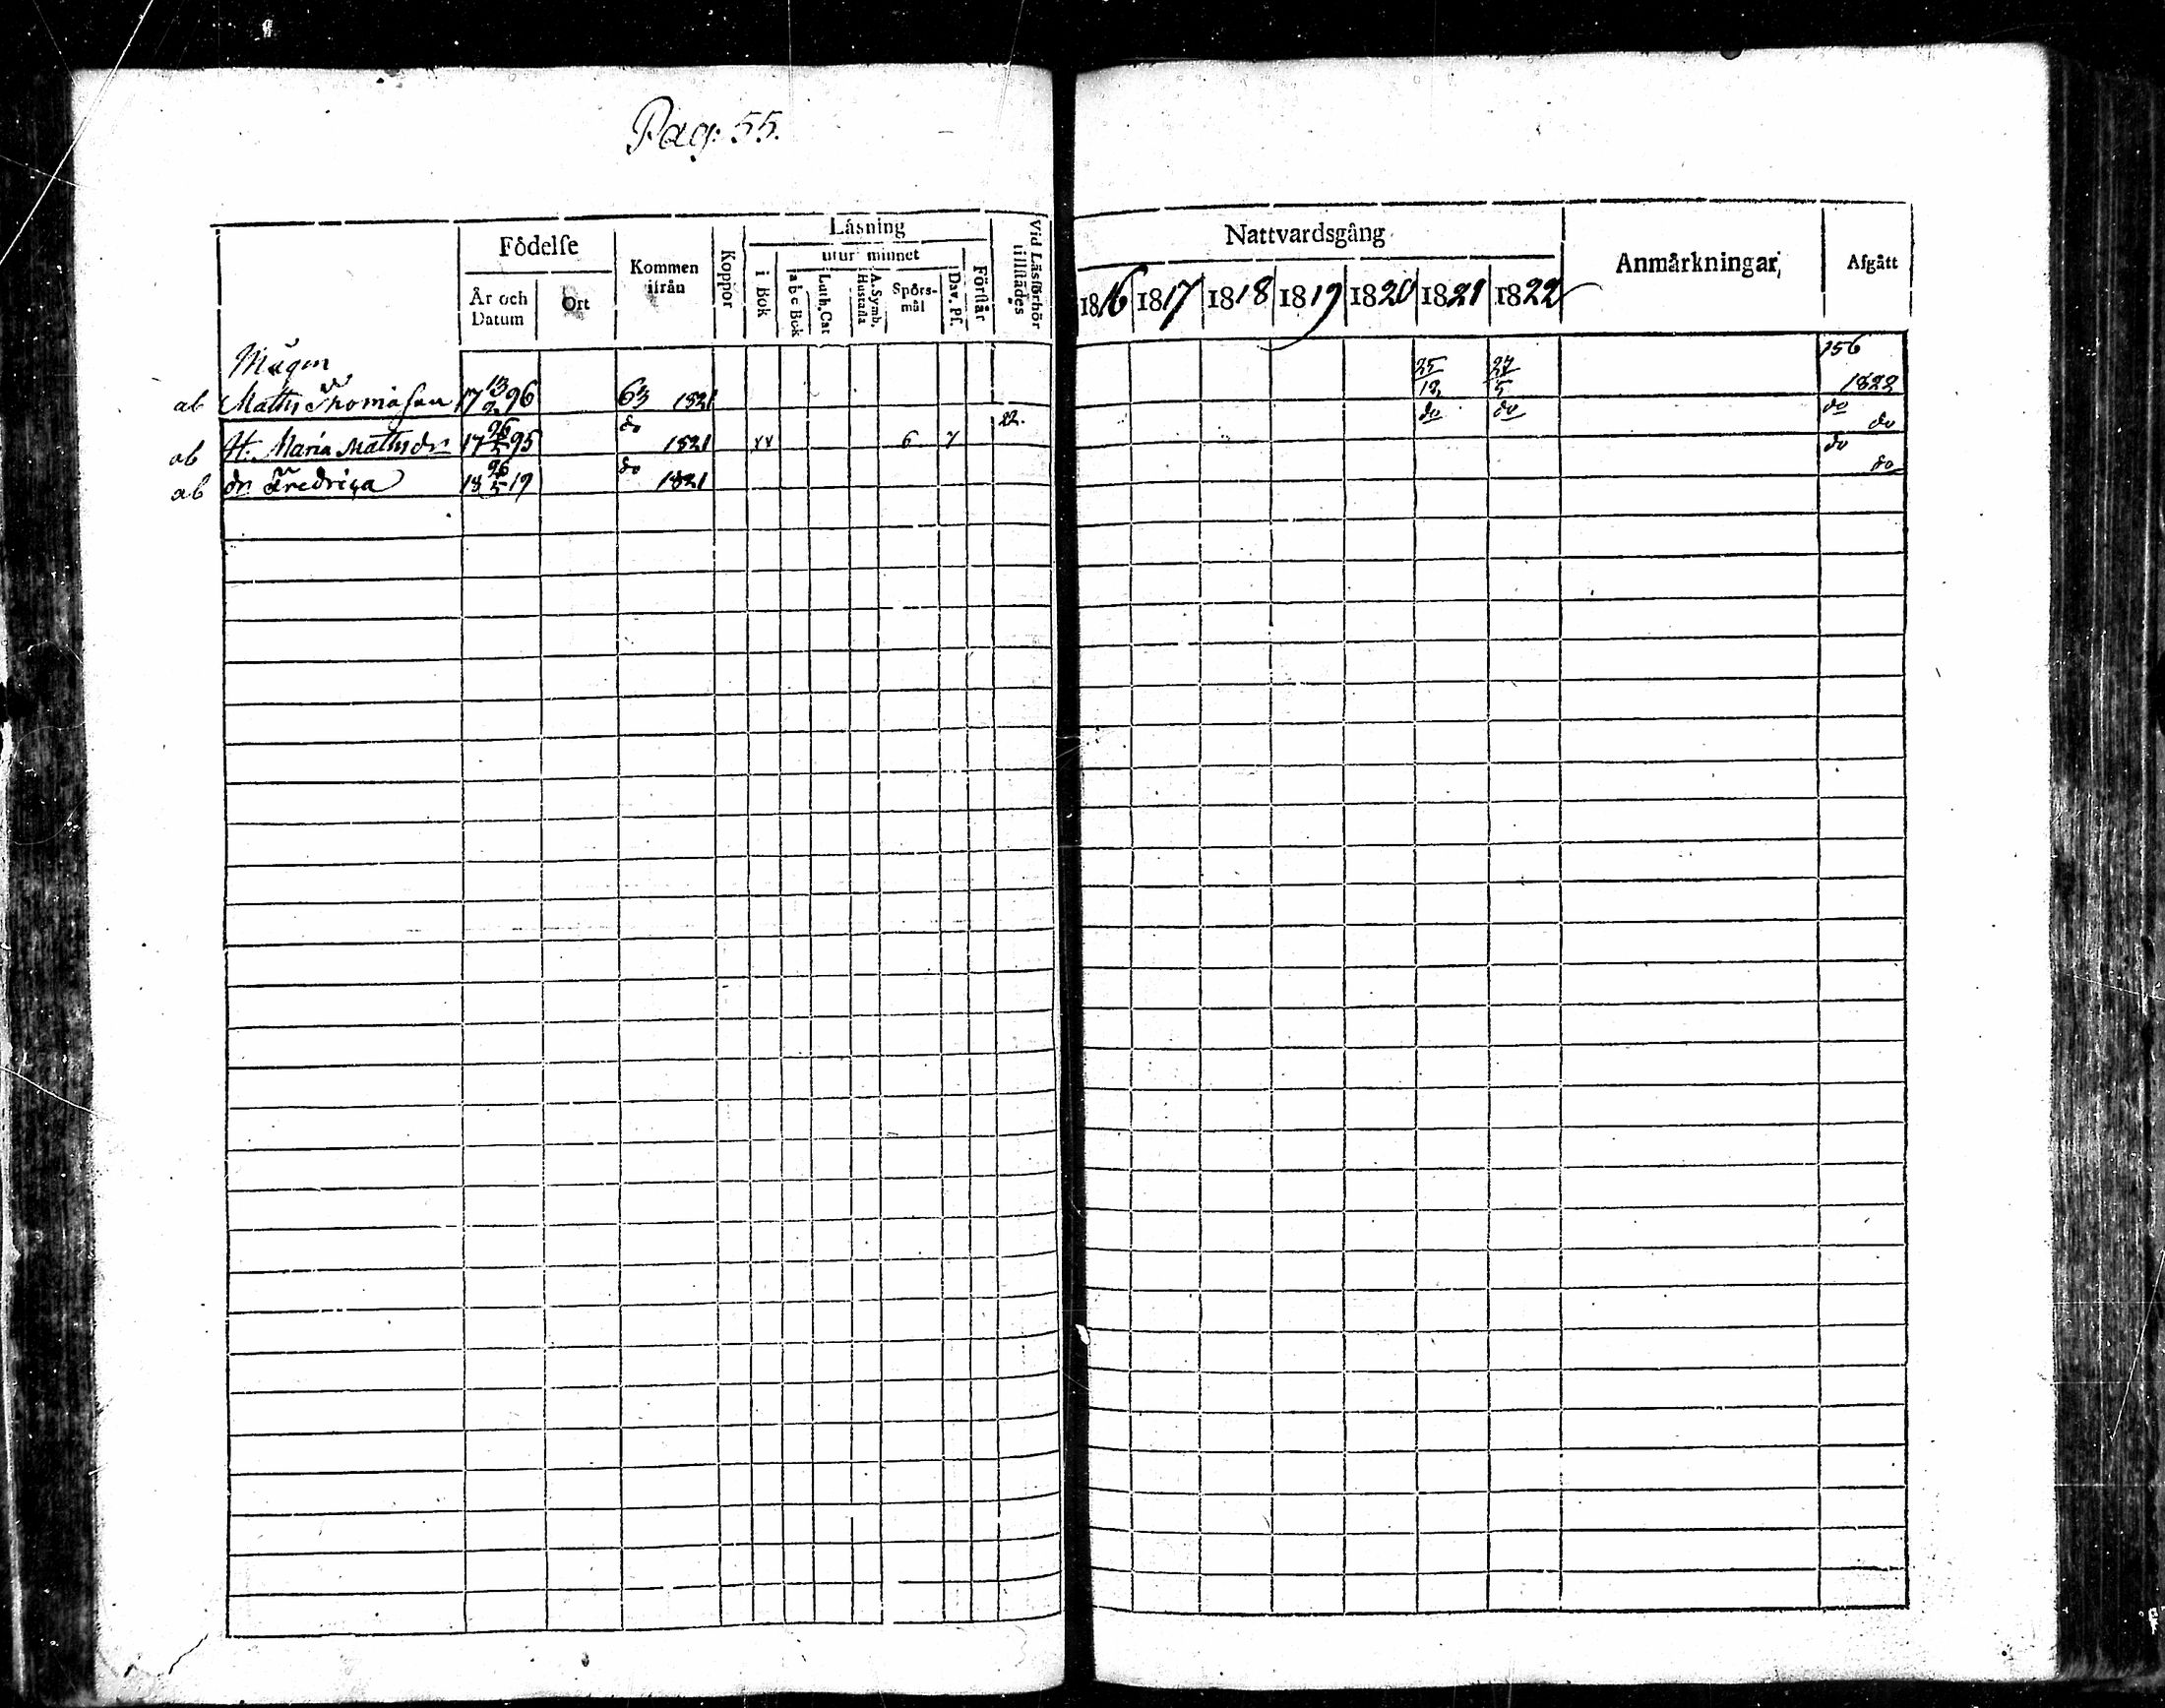 Pag: 55.
Födelse
År och Datum
Ort
Kommen ifrån
Koppor
Läsning
utur minnet
i Bok
a b c Bok
Luth. Cat
A. Symb. Hustafla
Spörsmål
Dav. Ps.
Förstår
Vid Läsförhör tillstädes
Nattvardsgång
1816 1817 1818 1819 1820 1821 1822
Anmärkningar
Afgått
Mågen 156
ab Matts Thomasson 17 13/2 96 63 1821 25/12 27/5 1822
ab H. Maria Mattsdr 17 95 do 1821 xx 6 22. do do do do
ab dr Fredrica 18 26/5 19 do 1821 do do